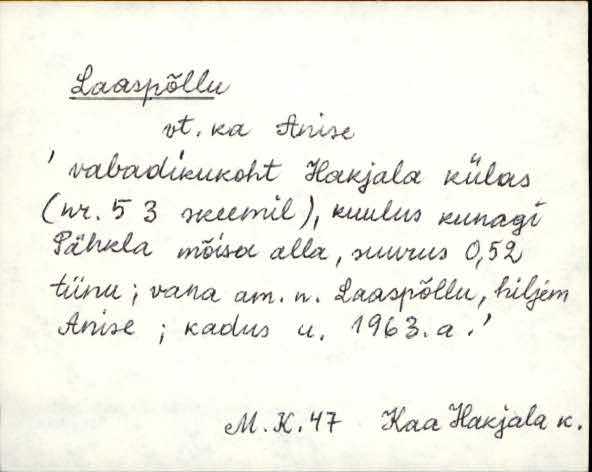 Laaspõllu
vt. ka Anise
' vabadikukoht Hakjala külas
(nr. 53 skeemil), kuulus kunagi
Pähkla mõisa alla, suurus 0,52
tiinu; vana am. n. Laaspõllu, hiljem
Anise; kadus u. 1963. a.'
M. K. 47 Kaa Hakjala k.